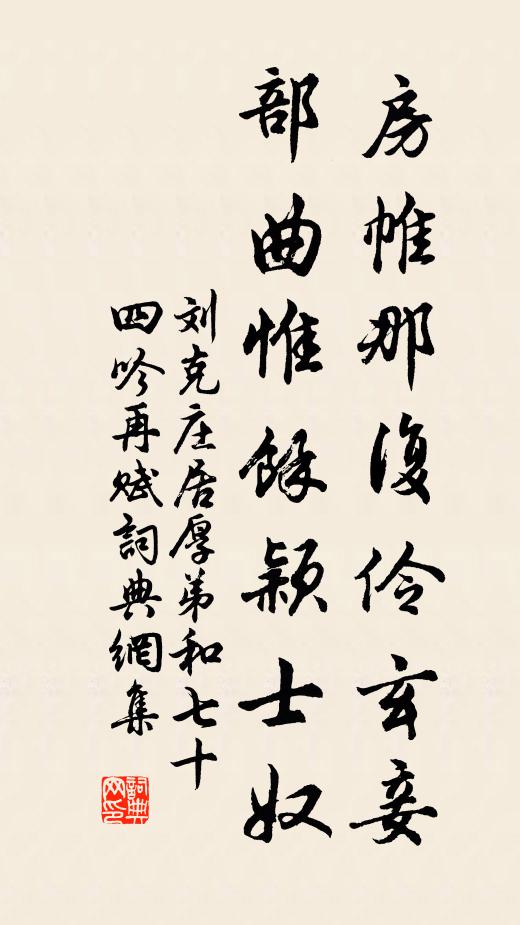 房帷那復伶玄妾
部曲惟餘颖士奴
刘克庄居厚弟和七十
四吟再赋詞典網集
詞典網印